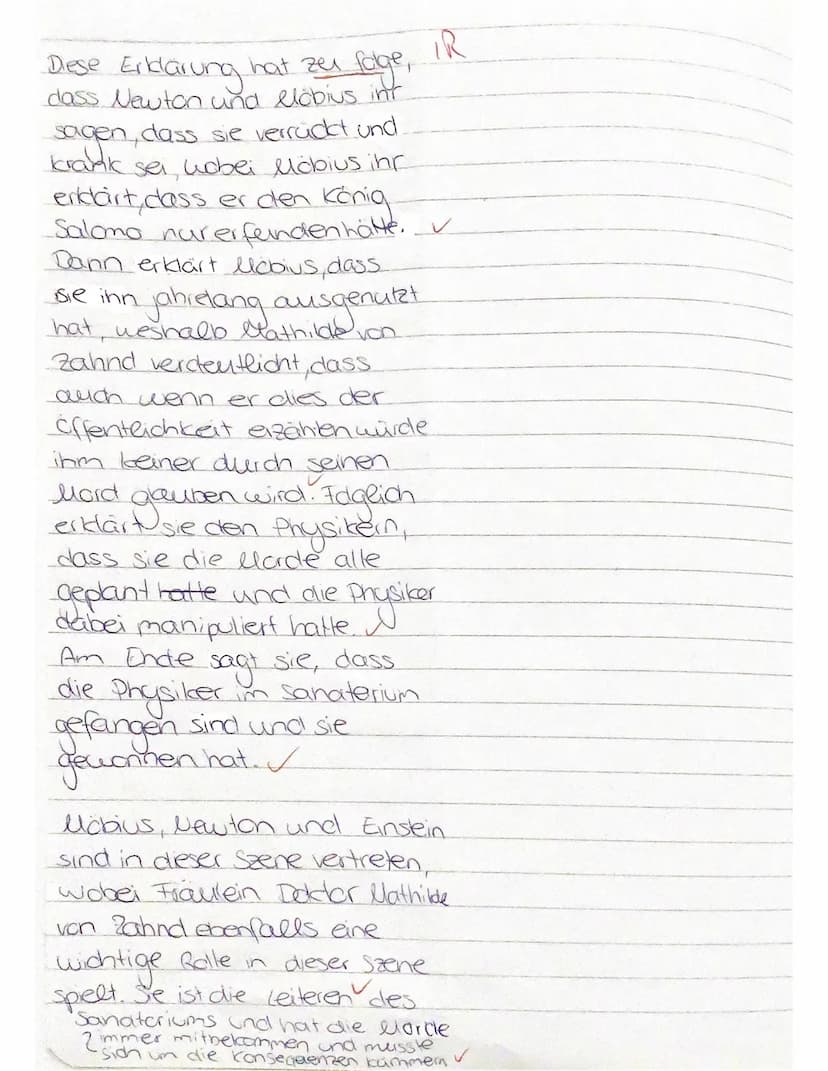 Diese Erklärung hat zu folge, 1R
dass Newton und Möbius ihr
sagen, dass sie verrückt und
krank sei, wobei Möbius ihr
erklärt, dass er den König
Salomo nur erfunden hätte. ✓
Dann erklärt Möbius, dass
sie ihn jahrelang ausgenutzt
hat, weshalb Mathilde von
Zahnd verdeutlicht, dass
auch wenn er dies der
Öffentlichkeit erzählen würde
ihm keiner durch seinen
Mord glauben wird. Folglich
erklärt sie den Physikern,
dass sie die Morde alle
geplant hatte und die Physiker
dabei manipuliert hatte. ✓
Am Ende sagt sie, dass
die Physiker im Sanatorium
gefangen sind und sie
gewonnen hat. ✓
Möbius, Newton und Einstein
sind in dieser Szene vertreten,
wobei Fräulein Doktor Mathilde
von Zahnd ebenfalls eine
wichtige Rolle in dieser Szene
spielt. Sie ist die Leiteren ✓ des
Sanatoriums und hat die Morde
immer mitbekommen und musste
sich um die Konsequenzen kümmern ✓